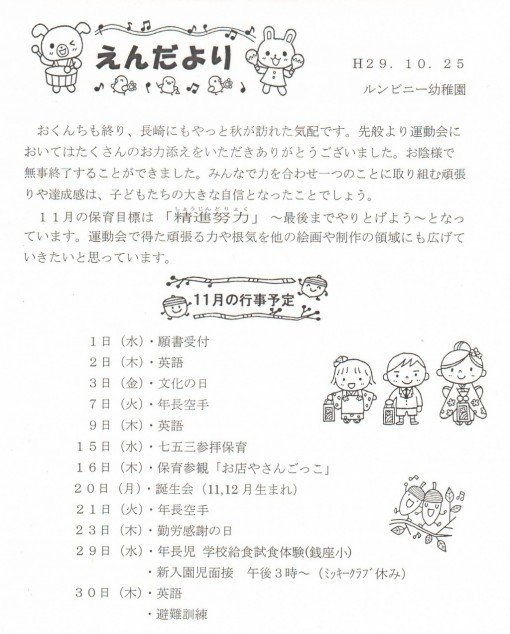 えんだより
H29．10．25
ルンビニー幼稚園
おくんちも終り、長崎にもやっと秋が訪れた気配です。先般より運動会に
おいてはたくさんのお力添えをいただきありがとうございました。お陰様で
無事終了することができました。みんなで力を合わせ一つのことに取り組む頑張
りや達成感は、子どもたちの大きな自信となったことでしょう。
しょうじんどりょく
11月の保育目標は「精進努力」～最後までやりとげよう～となっ
ています。運動会で得た頑張る力や根気を他の絵画や制作の領域にも広げて
いきたいと思っています。
11月の行事予定
1日（水）・願書受付
2日（木）・英語
3日（金）・文化の日
7日（火）・年長空手
9日（木）・英語
15日（水）・七五三参拝保育
16日（木）・保育参観「お店やさんごっこ」
20日（月）・誕生会（11,12月生まれ）
21日（火）・年長空手
23日（木）・勤労感謝の日
29日（水）・年長児 学校給食試食体験(銭座小)
・新入園児面接　午後3時～（ﾐｯｷｰｸﾗﾌﾞ休み）
30日（木）・英語
・避難訓練